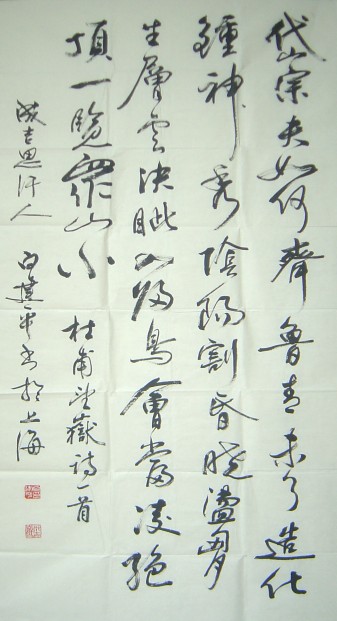 岱宗夫如何齊魯青未了造化
鍾神秀陰陽割昏曉盪胸
生層云決眦入歸鳥會當凌絕
頂一覽眾山小 杜甫望嶽詩一首
成吉思汗人 白平書於上海